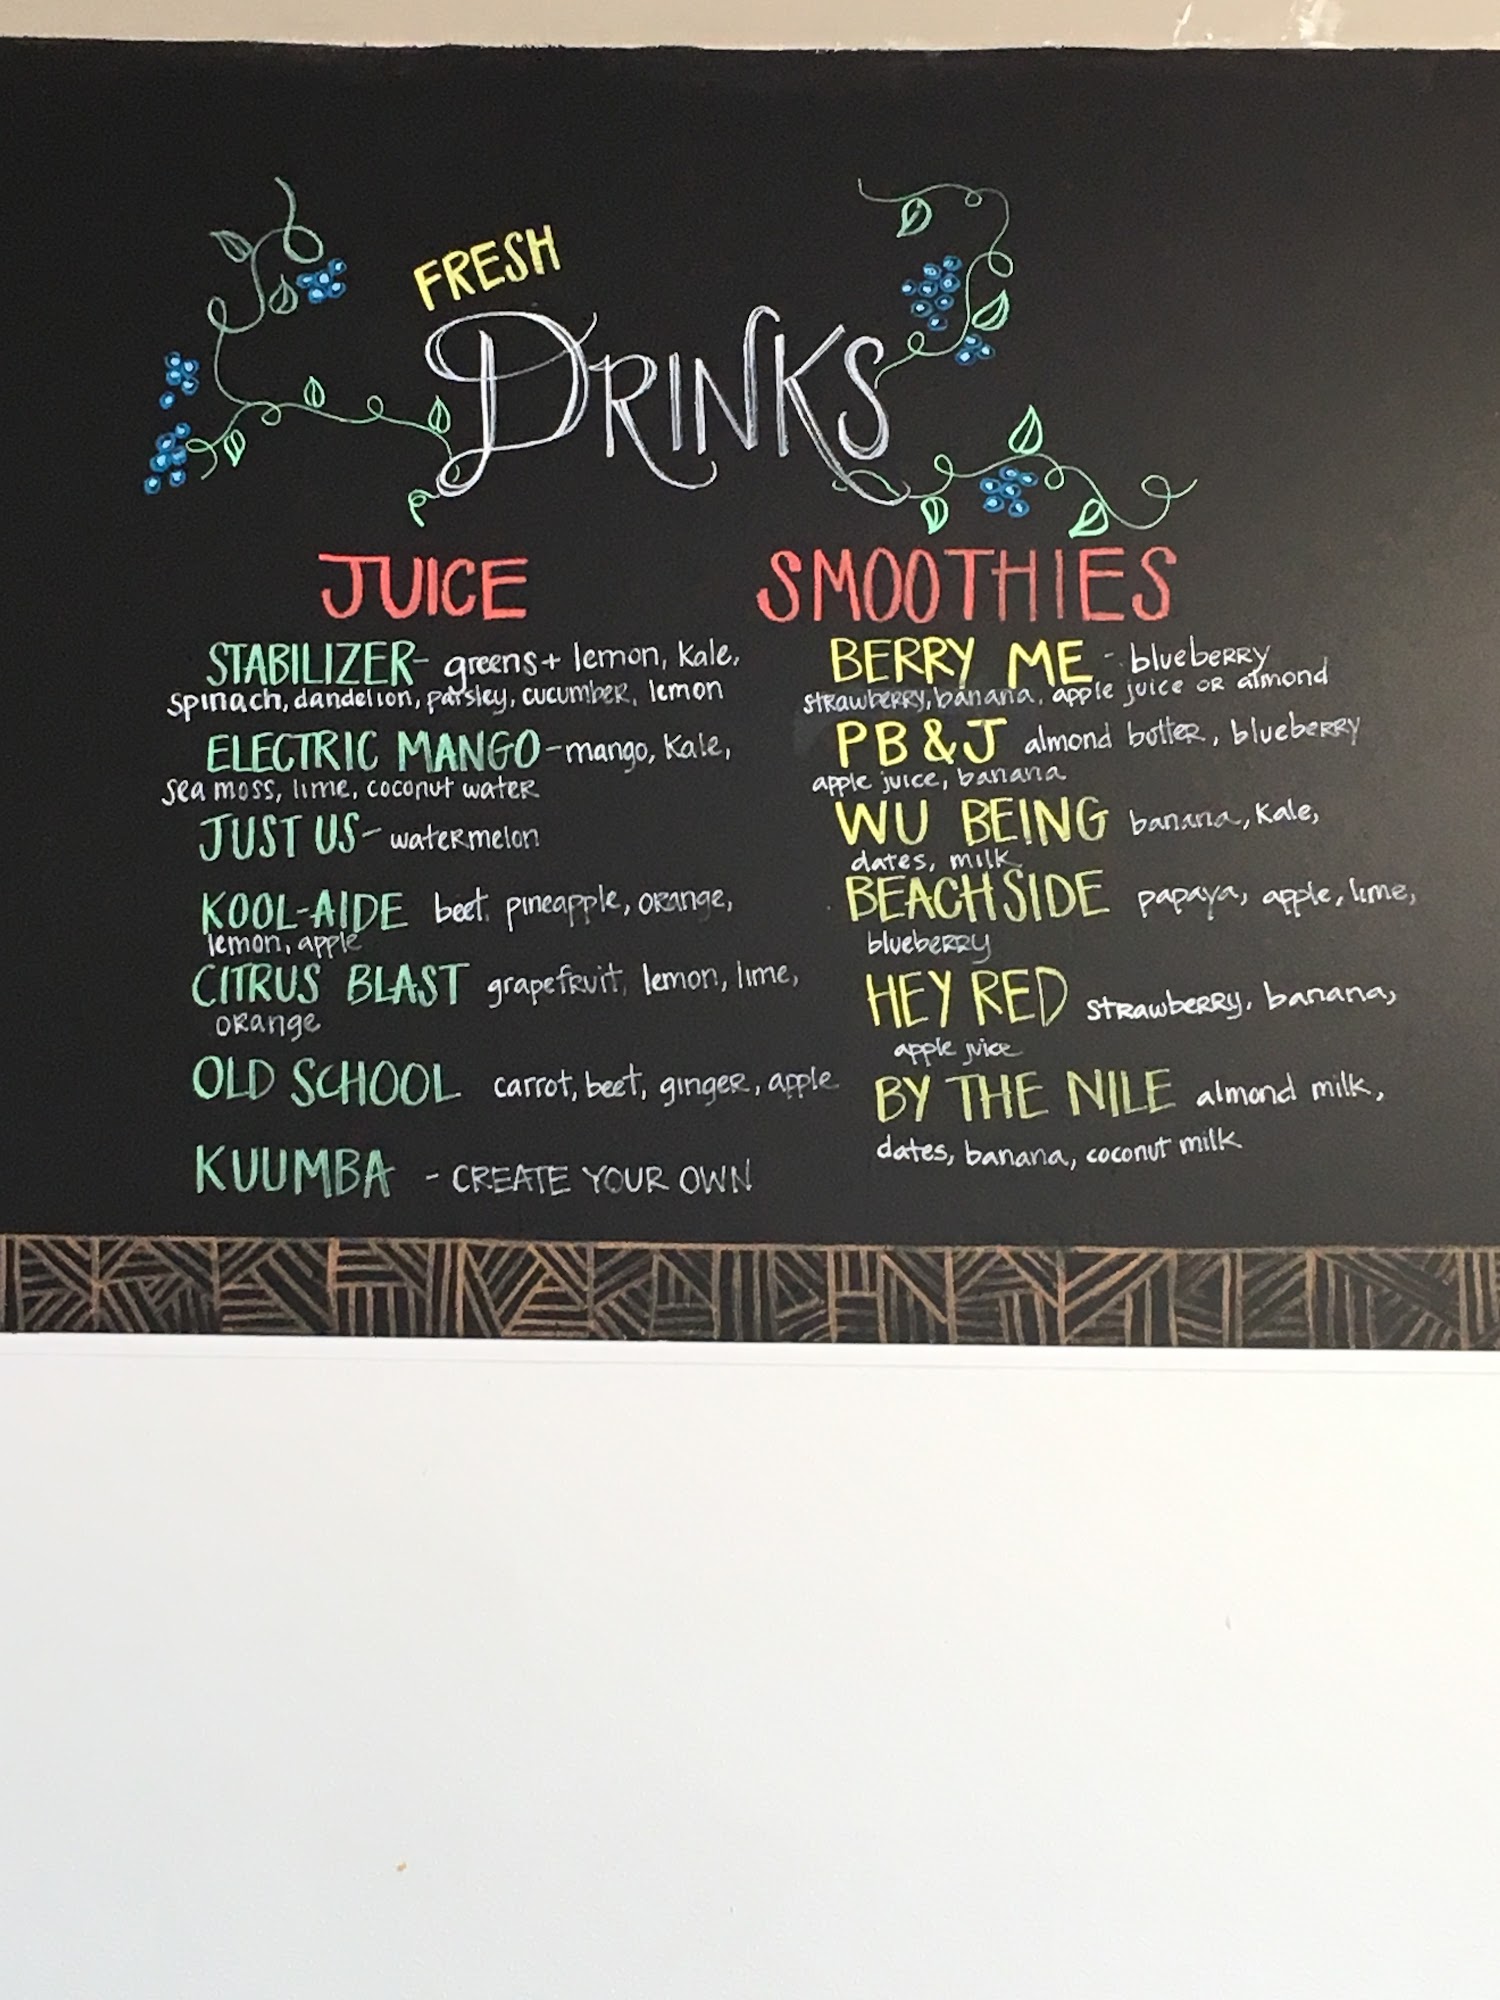 FRESH
DRINKS
JUICE
STABILIZER- greens+ lemon, kale,
spinach, dandelion, parsley, cucumber, lemon
ELECTRIC MANGO-mango, kale,
sea moss, lime, coconut water
JUST US- watermelon
KOOL-AIDE beet, pineapple, orange,
lemon, apple
CITRUS BLAST grapefruit, lemon, lime,
orange
OLD SCHOOL carrot, beet, ginger, apple
KUUMBA - CREATE YOUR OWN
SMOOTHIES
BERRY ME - blueberry
strawberry, banana, apple juice or almond
PB & J almond butter, blueberry
apple juice, banana
WU BEING banana, kale,
dates, milk
BEACHSIDE papaya, apple, lime,
blueberry
HEY RED strawberry, banana,
apple juice
BY THE NILE almond milk,
dates, banana, coconut milk